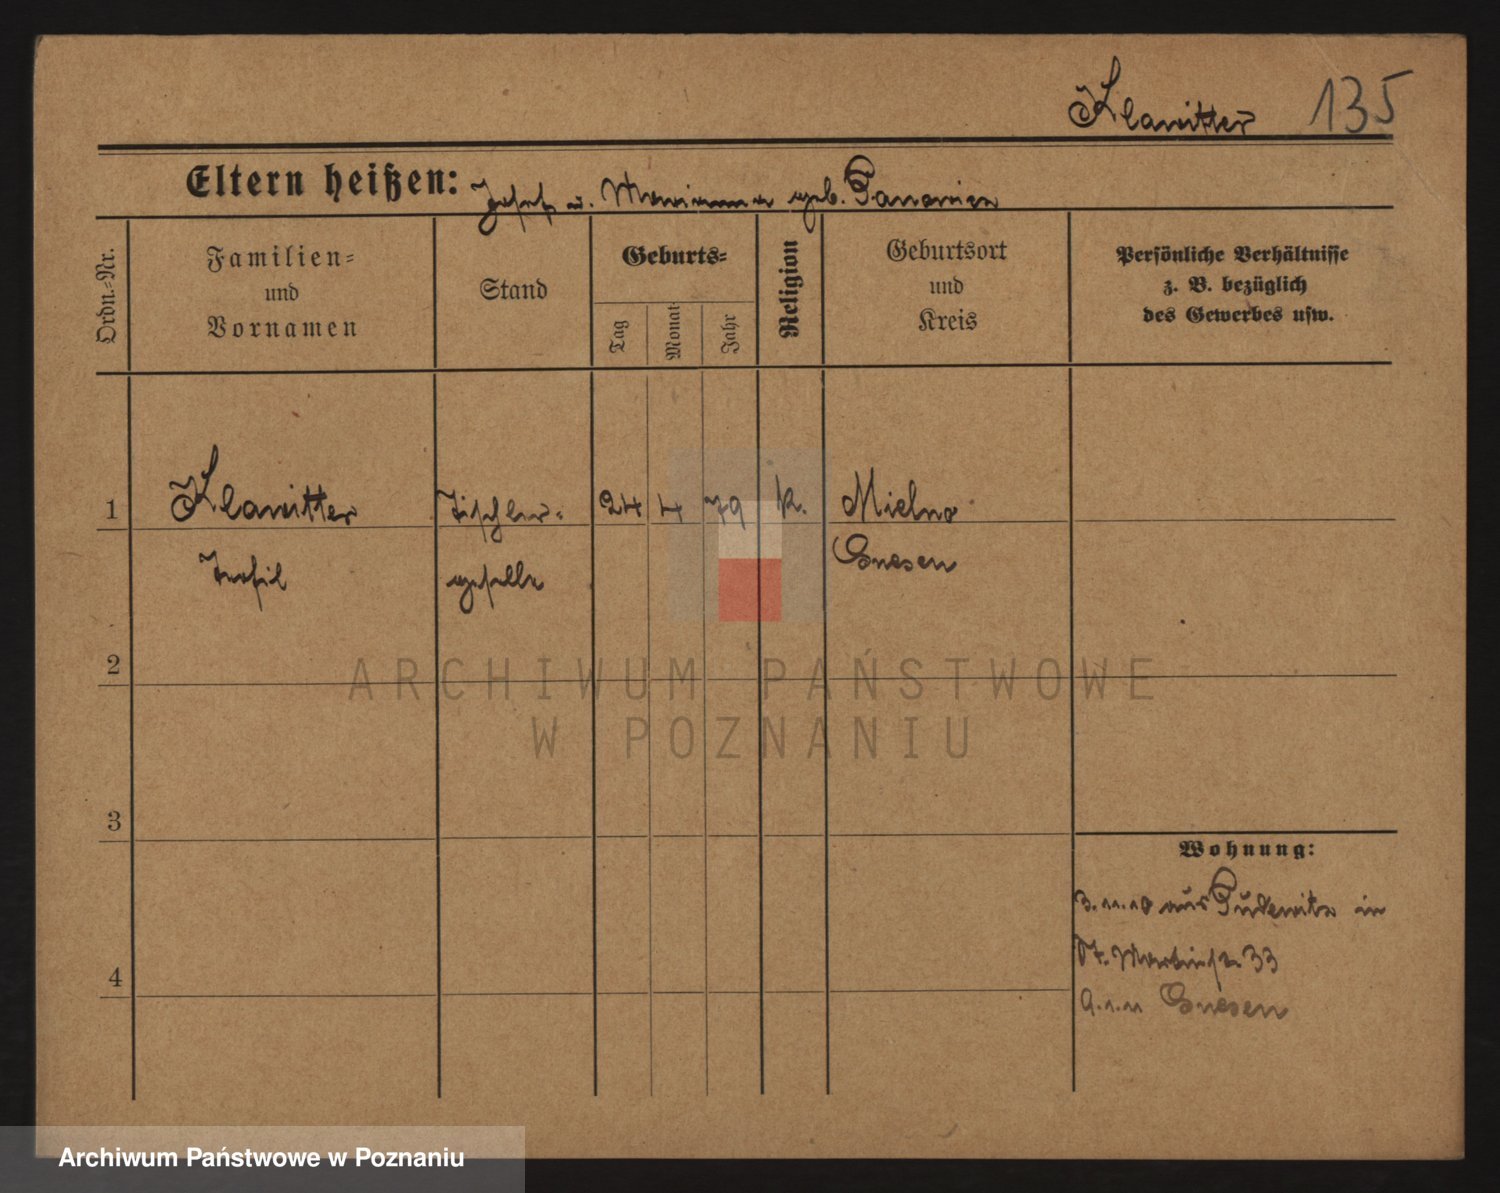 Klawitter 135
Eltern heißen: Josef u. Marianna geb.
Ordn.-Nr.
Familien-
und
Vornamen
Stand
Geburts-
Tag
Monat
Jahr
Religion
Geburtsort
und
Kreis
Persönliche Verhältnisse
z. B. bezüglich
des Gewerbes usw.
1 Klawitter Tischler- 24 4 79 k. Mielno
Teofil geselle Gnesen
2
ARCHIWUM PAŃSTWOWE
W POZNANIU
3
Wohnung:
3.11.10 aus Pudewitz in
St. Martinstr. 33
4
9.1.11 Gnesen
Archiwum Państwowe w Poznaniu